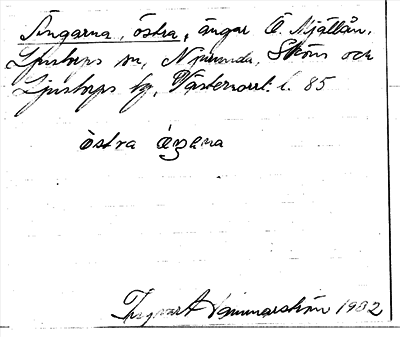 Ängarna, östra, ängar Ö. Mjällån,
Ljustorps sn, Njurunda, Sköns och
Ljustorps tg, Västernorrl. l. 85
östra áŋena
Ingvart Hammarström 1932